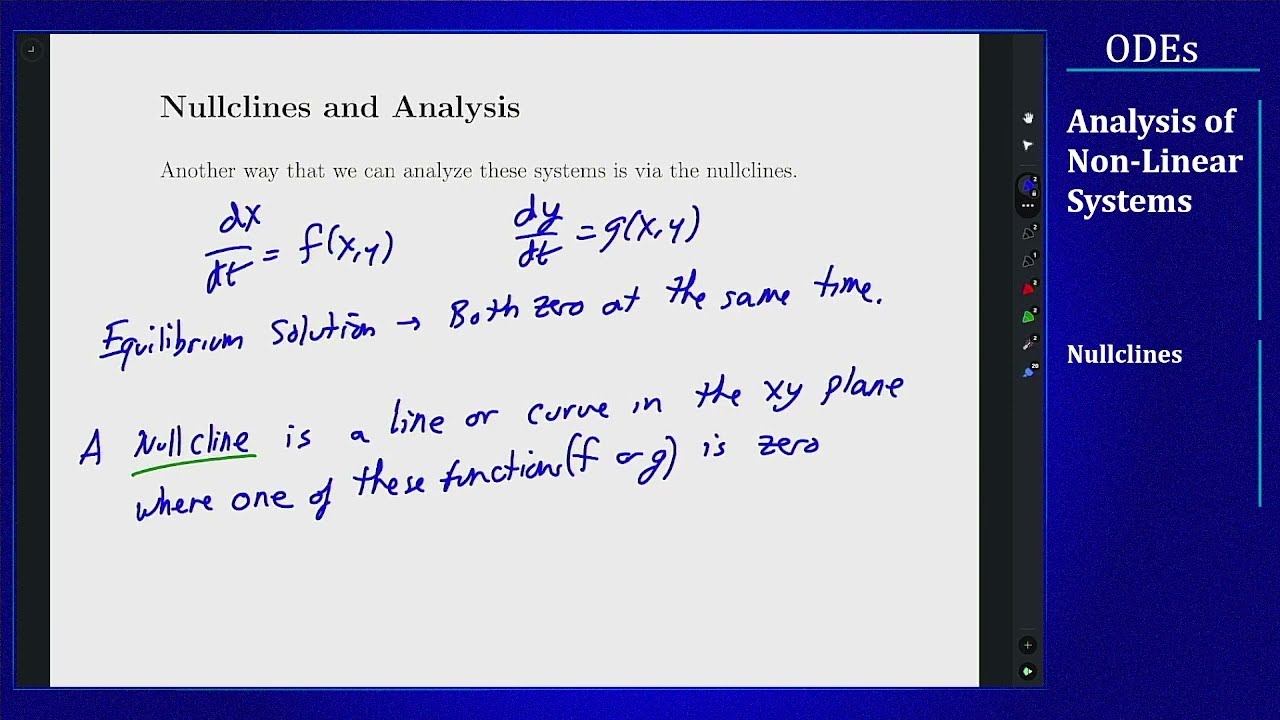 Nullclines and Analysis
Another way that we can analyze these systems is via the nullclines.
dx/dt = f(x,y) dy/dt = g(x,y)
Equilibrium Solution → Both zero at the same time.
A Nullcline is a line or curve in the xy plane
where one of these functions (f or g) is zero
ODEs
Analysis of
Non-Linear
Systems
Nullclines